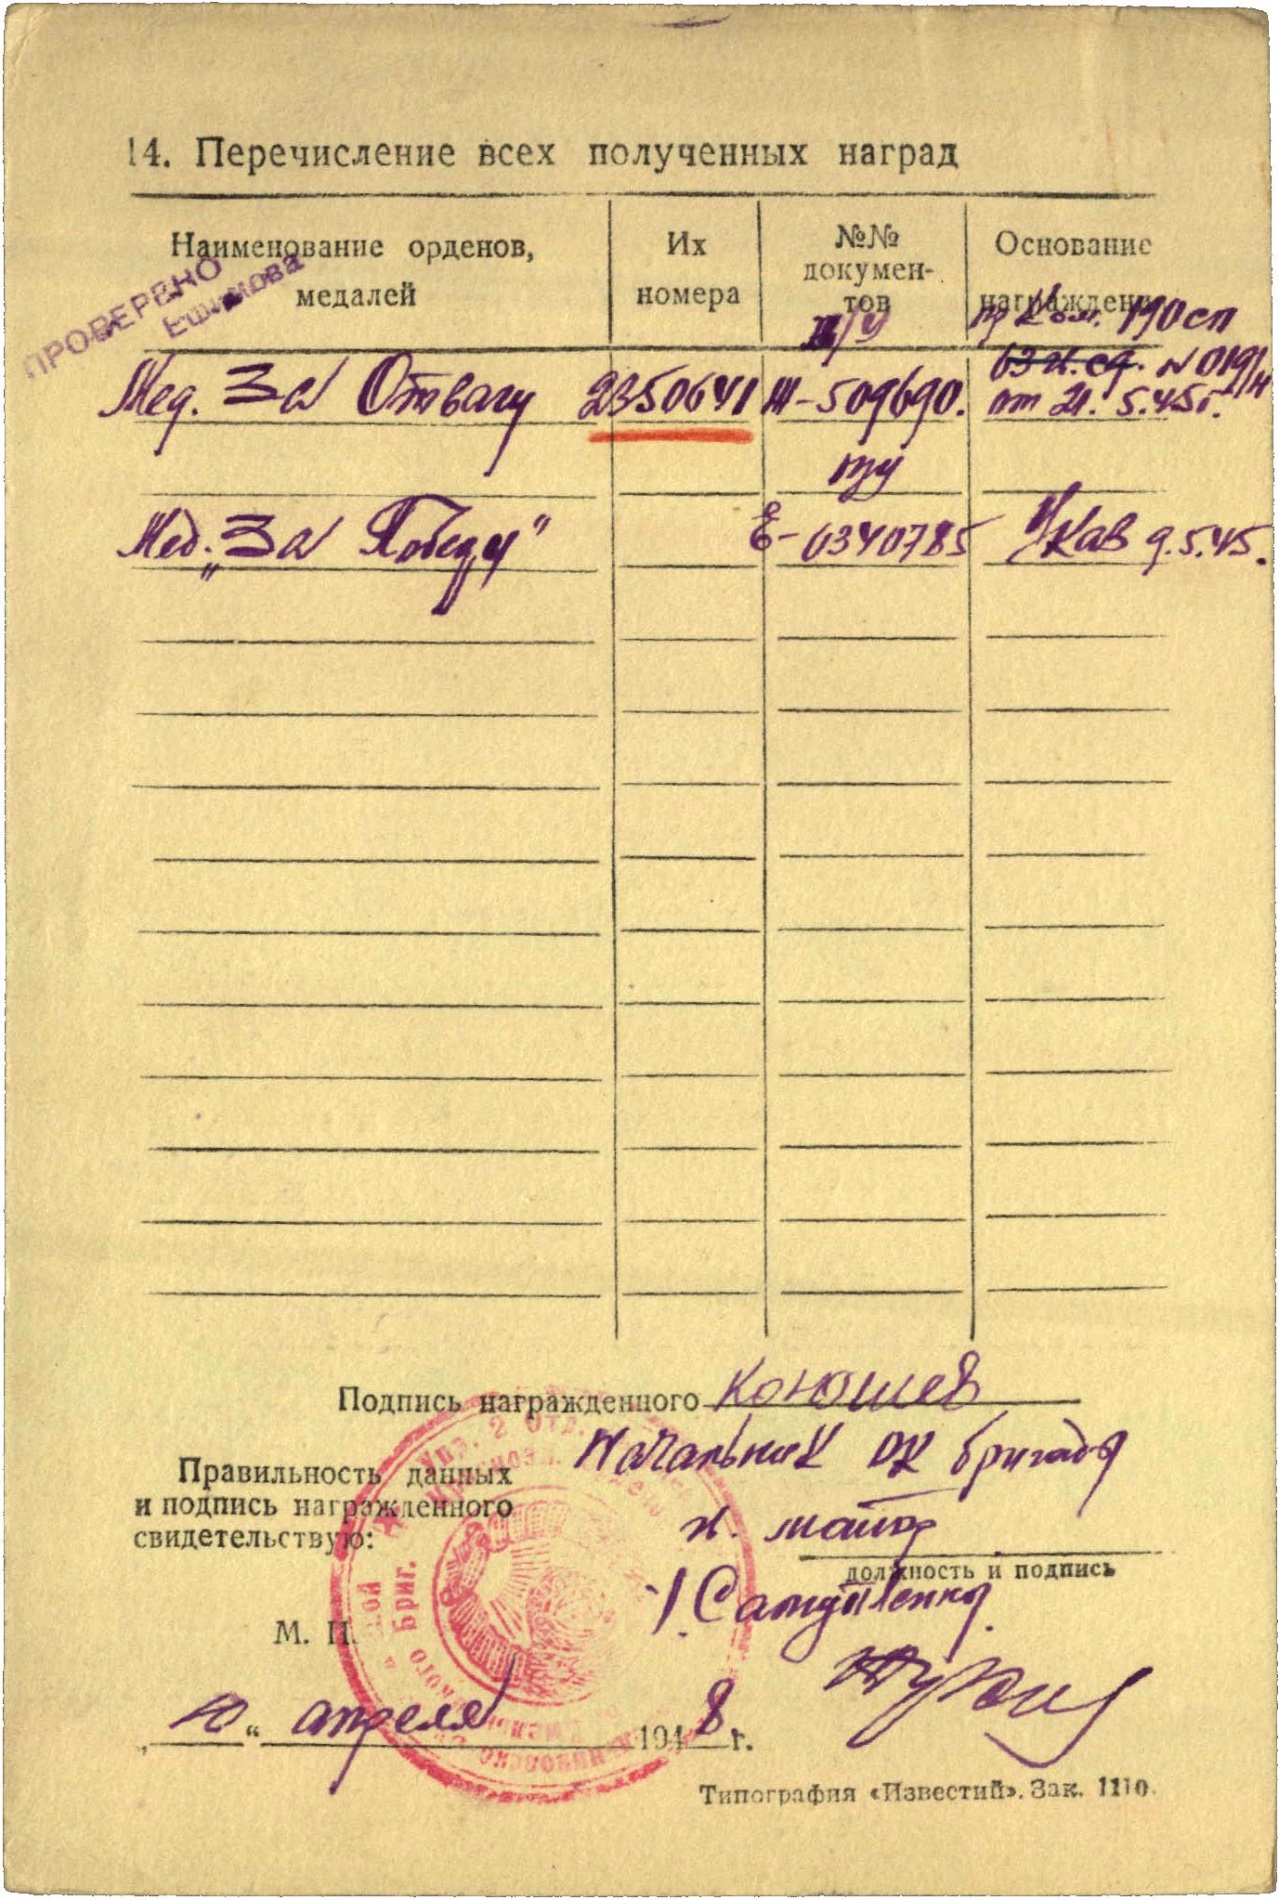 14. Перечисление всех полученных наград
Наименование орденов, медалей
Их номера
№№ документов
Основание награждения
ПРОВЕРЕНО
Ефимова
в/у
пр Ком. 190 сп
63 к. сд. N 019/н
Мед. За Отвагу 2350641 Ж-509690. от 21. 5.45г.
Мед. „За Победу“ Е-0340785 Указ 9.5.45.
Подпись награжденного Конюшев
Начальник ОК бригады
Правильность данных
и подпись награжденного
свидетельствую:
к. майор
должность и подпись
М. П.
10 “ апреля 1948 г.
Типография «Известий». Зак. 1110.